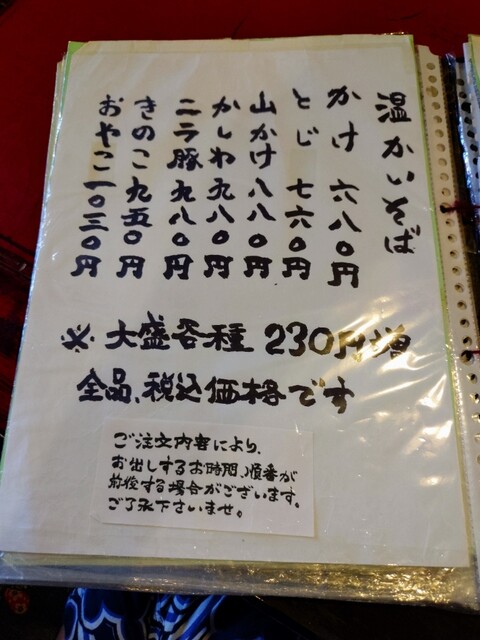 温かいそば
かけ 六八〇円
とじ 七六〇円
山かけ 八八〇円
かしわ 九八〇円
ニラ豚 九八〇円
きのこ 九五〇円
おやこ 一〇三〇円
※大盛各種 230円増
全品、税込価格です
ご注文内容により、
お出しするお時間、順番が
前後する場合がございます。
ご了承下さいませ。